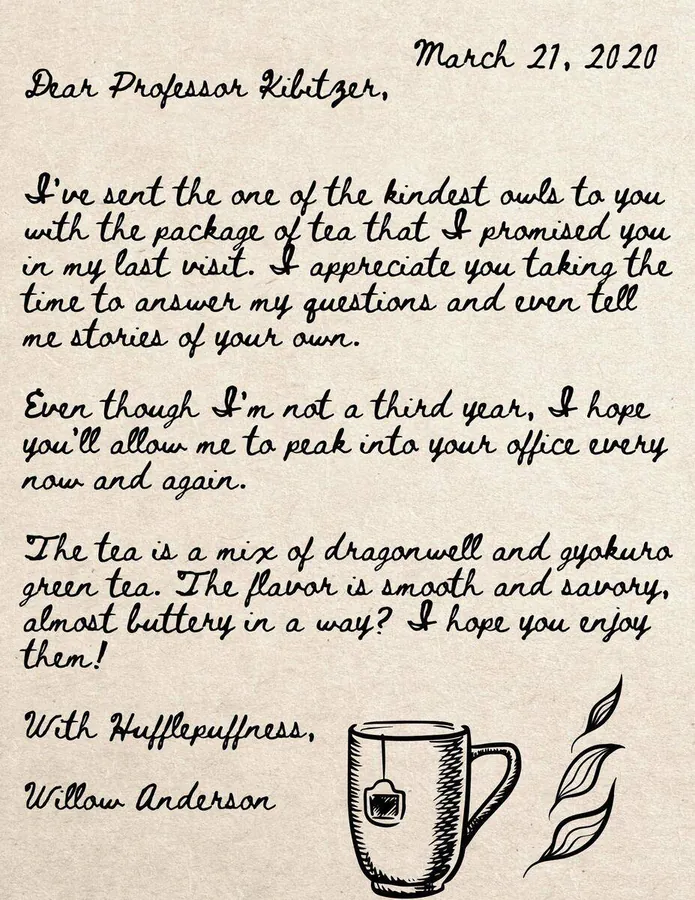 March 21, 2020
Dear Professor Kibitzer,
I've sent the one of the kindest owls to you
with the package of tea that I promised you
in my last visit. I appreciate you taking the
time to answer my questions and even tell
me stories of your own.
Even though I'm not a third year, I hope
you'll allow me to peak into your office every
now and again.
The tea is a mix of dragonwell and gyokuro
green tea. The flavor is smooth and savory,
almost buttery in a way? I hope you enjoy
them!
With Hufflepuffness,
Willow Anderson